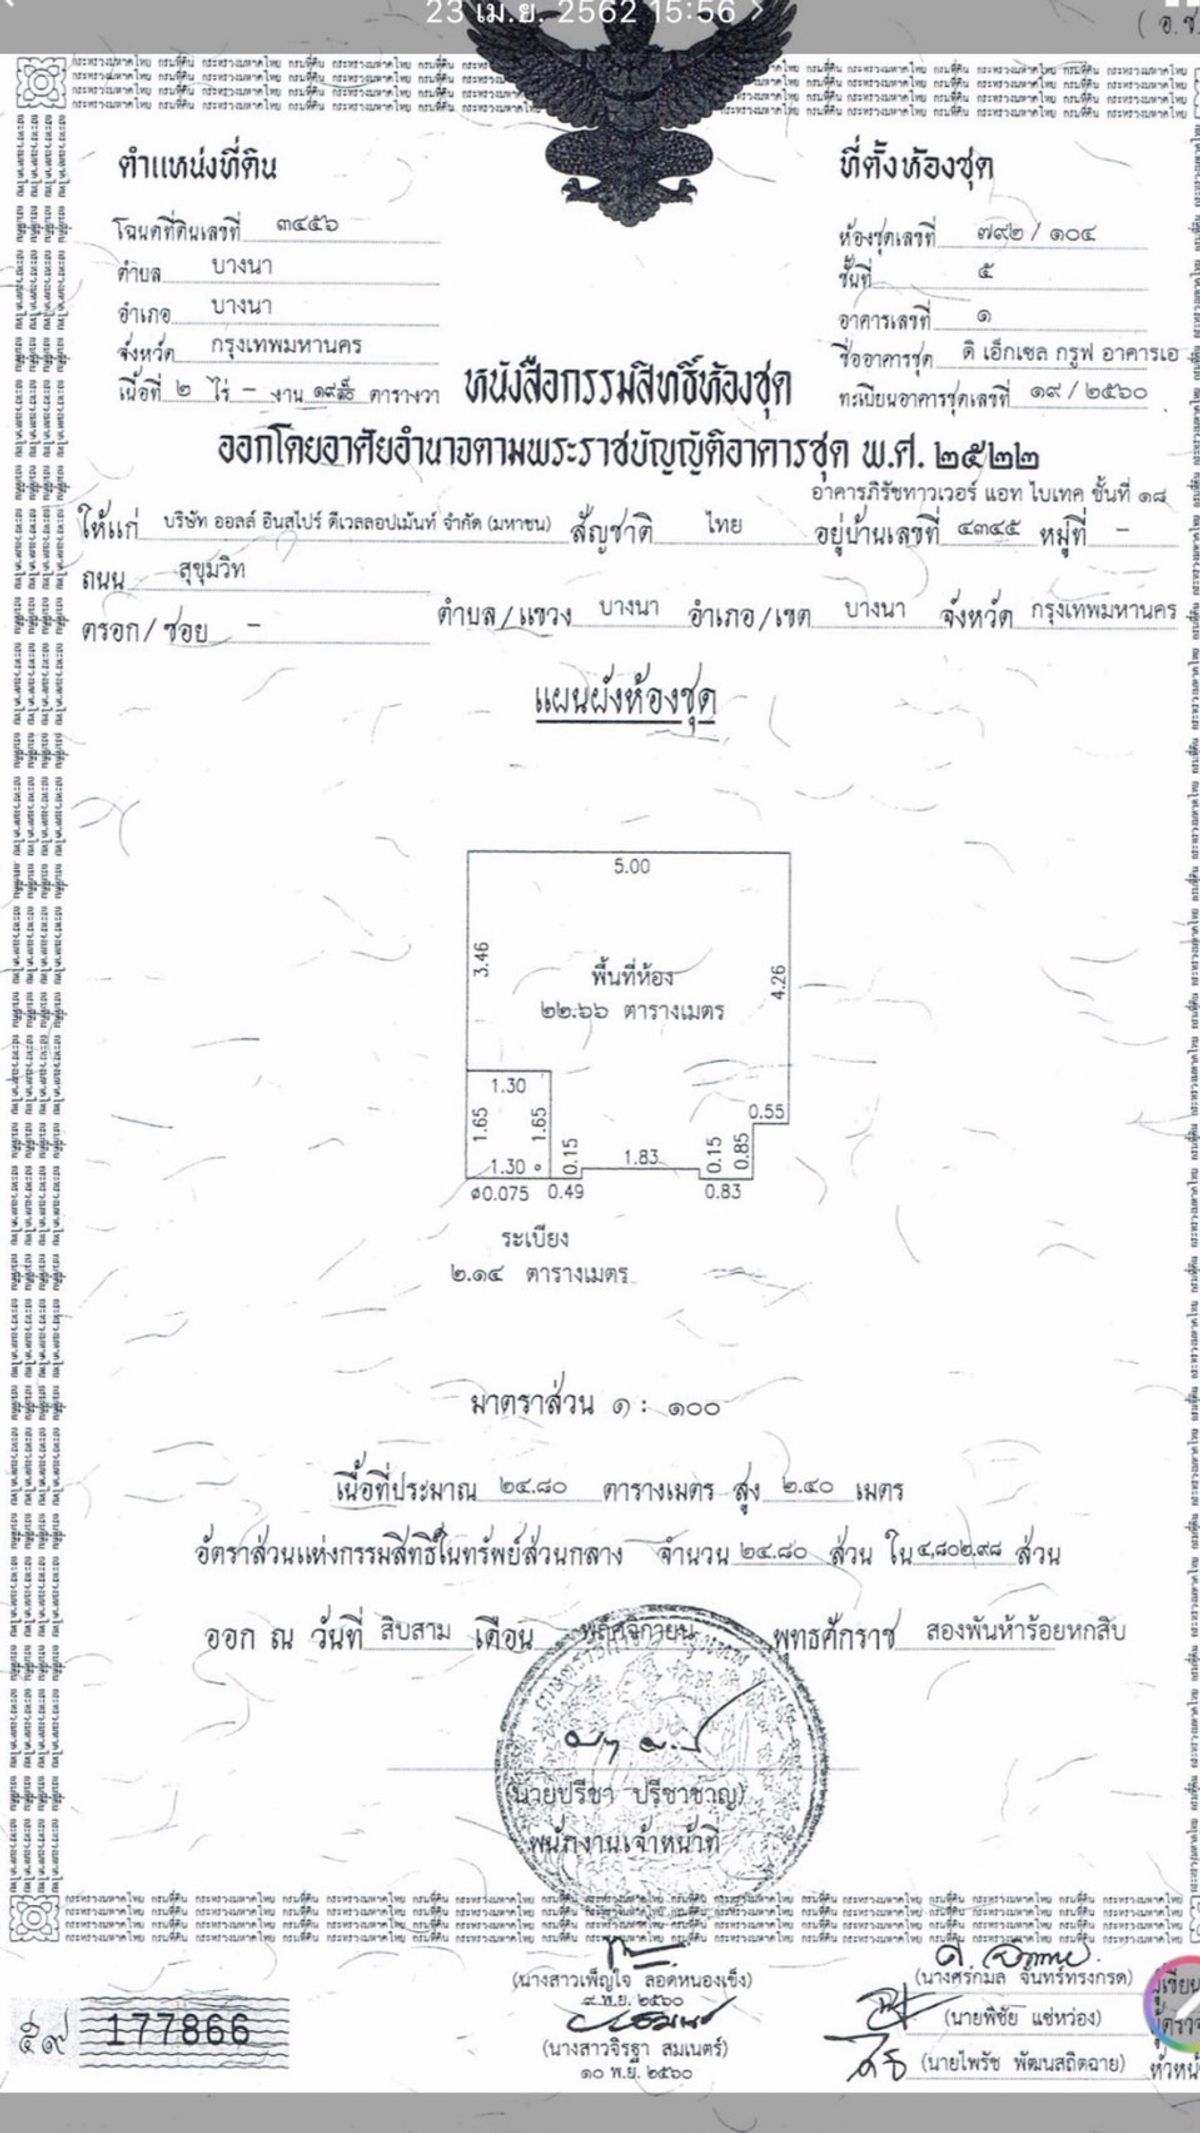 23 เม.ย. 2562 15:56
ตำแหน่งที่ดิน
โฉนดที่ดินเลขที่ ๓๔๕๖
ตำบล บางนา
อำเภอ บางนา
จังหวัด กรุงเทพมหานคร
เนื้อที่ ๒ ไร่ – งาน ตารางวา
ที่ตั้งห้องชุด
ห้องชุดเลขที่ ๗๙๒ / ๑๐๔
ชั้นที่ ๕
อาคารเลขที่ ๑
ชื่ออาคารชุด ดิ เอ็กเซล กรูฟ อาคารเอ
ทะเบียนอาคารชุดเลขที่ ๑๙ / ๒๕๖๐
หนังสือกรรมสิทธิ์ห้องชุด
ออกโดยอาศัยอำนาจตามพระราชบัญญัติอาคารชุด พ.ศ. ๒๕๒๒
อาคารภิรัชทาวเวอร์ แอท ไบเทค ชั้นที่ ๑๘
ให้แก่ บริษัท ออลล์ อินสไปร์ ดีเวลลอปเม้นท์ จำกัด (มหาชน) สัญชาติ ไทย อยู่บ้านเลขที่ ๔๓๔๕ หมู่ที่ –
ถนน สุขุมวิท
ตรอก/ซอย – ตำบล/แขวง บางนา อำเภอ/เขต บางนา จังหวัด กรุงเทพมหานคร
แผนผังห้องชุด
5.00
3.46
4.26
พื้นที่ห้อง
๒๒.๖๖ ตารางเมตร
1.30
0.55
1.65
1.65
0.15
1.83
0.15
0.85
1.30
ø0.075 0.49 0.83
ระเบียง
๒.๑๔ ตารางเมตร
มาตราส่วน ๑ : ๑๐๐
เนื้อที่ประมาณ ๒๔.๘๐ ตารางเมตร สูง ๒.๔๐ เมตร
อัตราส่วนแห่งกรรมสิทธิ์ในทรัพย์ส่วนกลาง จำนวน ๒๔.๘๐ ส่วน ใน ๔,๘๐๒.๙๘ ส่วน
ออก ณ วันที่ สิบสาม เดือน พฤศจิกายน พุทธศักราช สองพันห้าร้อยหกสิบ
(นายปรีชา ปรีชาชาญ)
พนักงานเจ้าหน้าที่
(นางสาวเพ็ญใจ ลอดหนองเข็ง)
๙ พ.ย. ๒๕๖๐
(นางสาวจิรฐา สมเนตร์)
๑๐ พ.ย. ๒๕๖๐
(นางศรีกมล จันทร์ทรงกรด)
(นายพิชัย แซ่หว่อง)
(นายไพรัช พัฒนสถิตฉาย)
๕๙ 177866